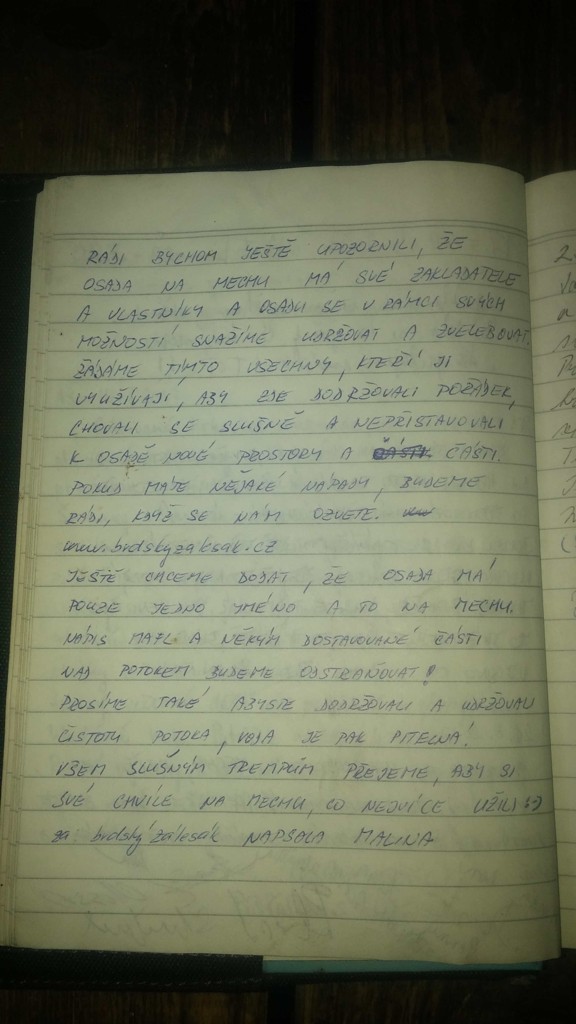 RÁDI BYCHOM JEŠTĚ UPOZORNILI, ŽE
OSADA NA MECHU MÁ SVÉ ZAKLADATELE
A VLASTNÍKY A OSADU SE V RÁMCI SVÝCH
MOŽNOSTÍ SNAŽÍME UDRŽOVAT A ZVELEBOVAT.
ŽÁDÁME TÍMTO VŠECHNY, KTEŘÍ JI
VYUŽÍVAJÍ, ABY ZDE DODRŽOVALI POŽÁDEK,
CHOVALI SE SLUŠNĚ A NEPŘISTAVOVALI
K OSADĚ NOVÉ PROSTORY A ČÁSTI.
POKUD MÁTE NĚJAKÉ NÁPADY, BUDEME
RÁDI, KDYŽ SE NÁM OZVETE.
www.brdskyzalesak.cz
JEŠTĚ CHCEME DODAT, ŽE OSADA MÁ
POUZE JEDNO JMÉNO A TO NA MECHU.
NÁPIS A NĚKÝM DOSTAVOVANÉ ČÁSTI
NAD POTOKEM BUDEME ODSTRAŇOVAT!
PROSÍME TAKÉ ABYSTE DODRŽOVALI A UDRŽOVALI
ČISTOTU POTOKA, VODA JE PAK PITELNÁ!
VŠEM SLUŠNÝM TREMPŮM PŘEJEME, ABY SI
SVÉ CHVÍLE NA MECHU, CO NEJVÍCE UŽILI :-)
za brdský zálesák NAPSALA MALINA